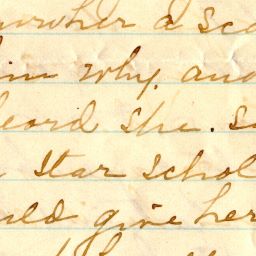 a sc
him why. and
heard she. s
Star schol
uld give her